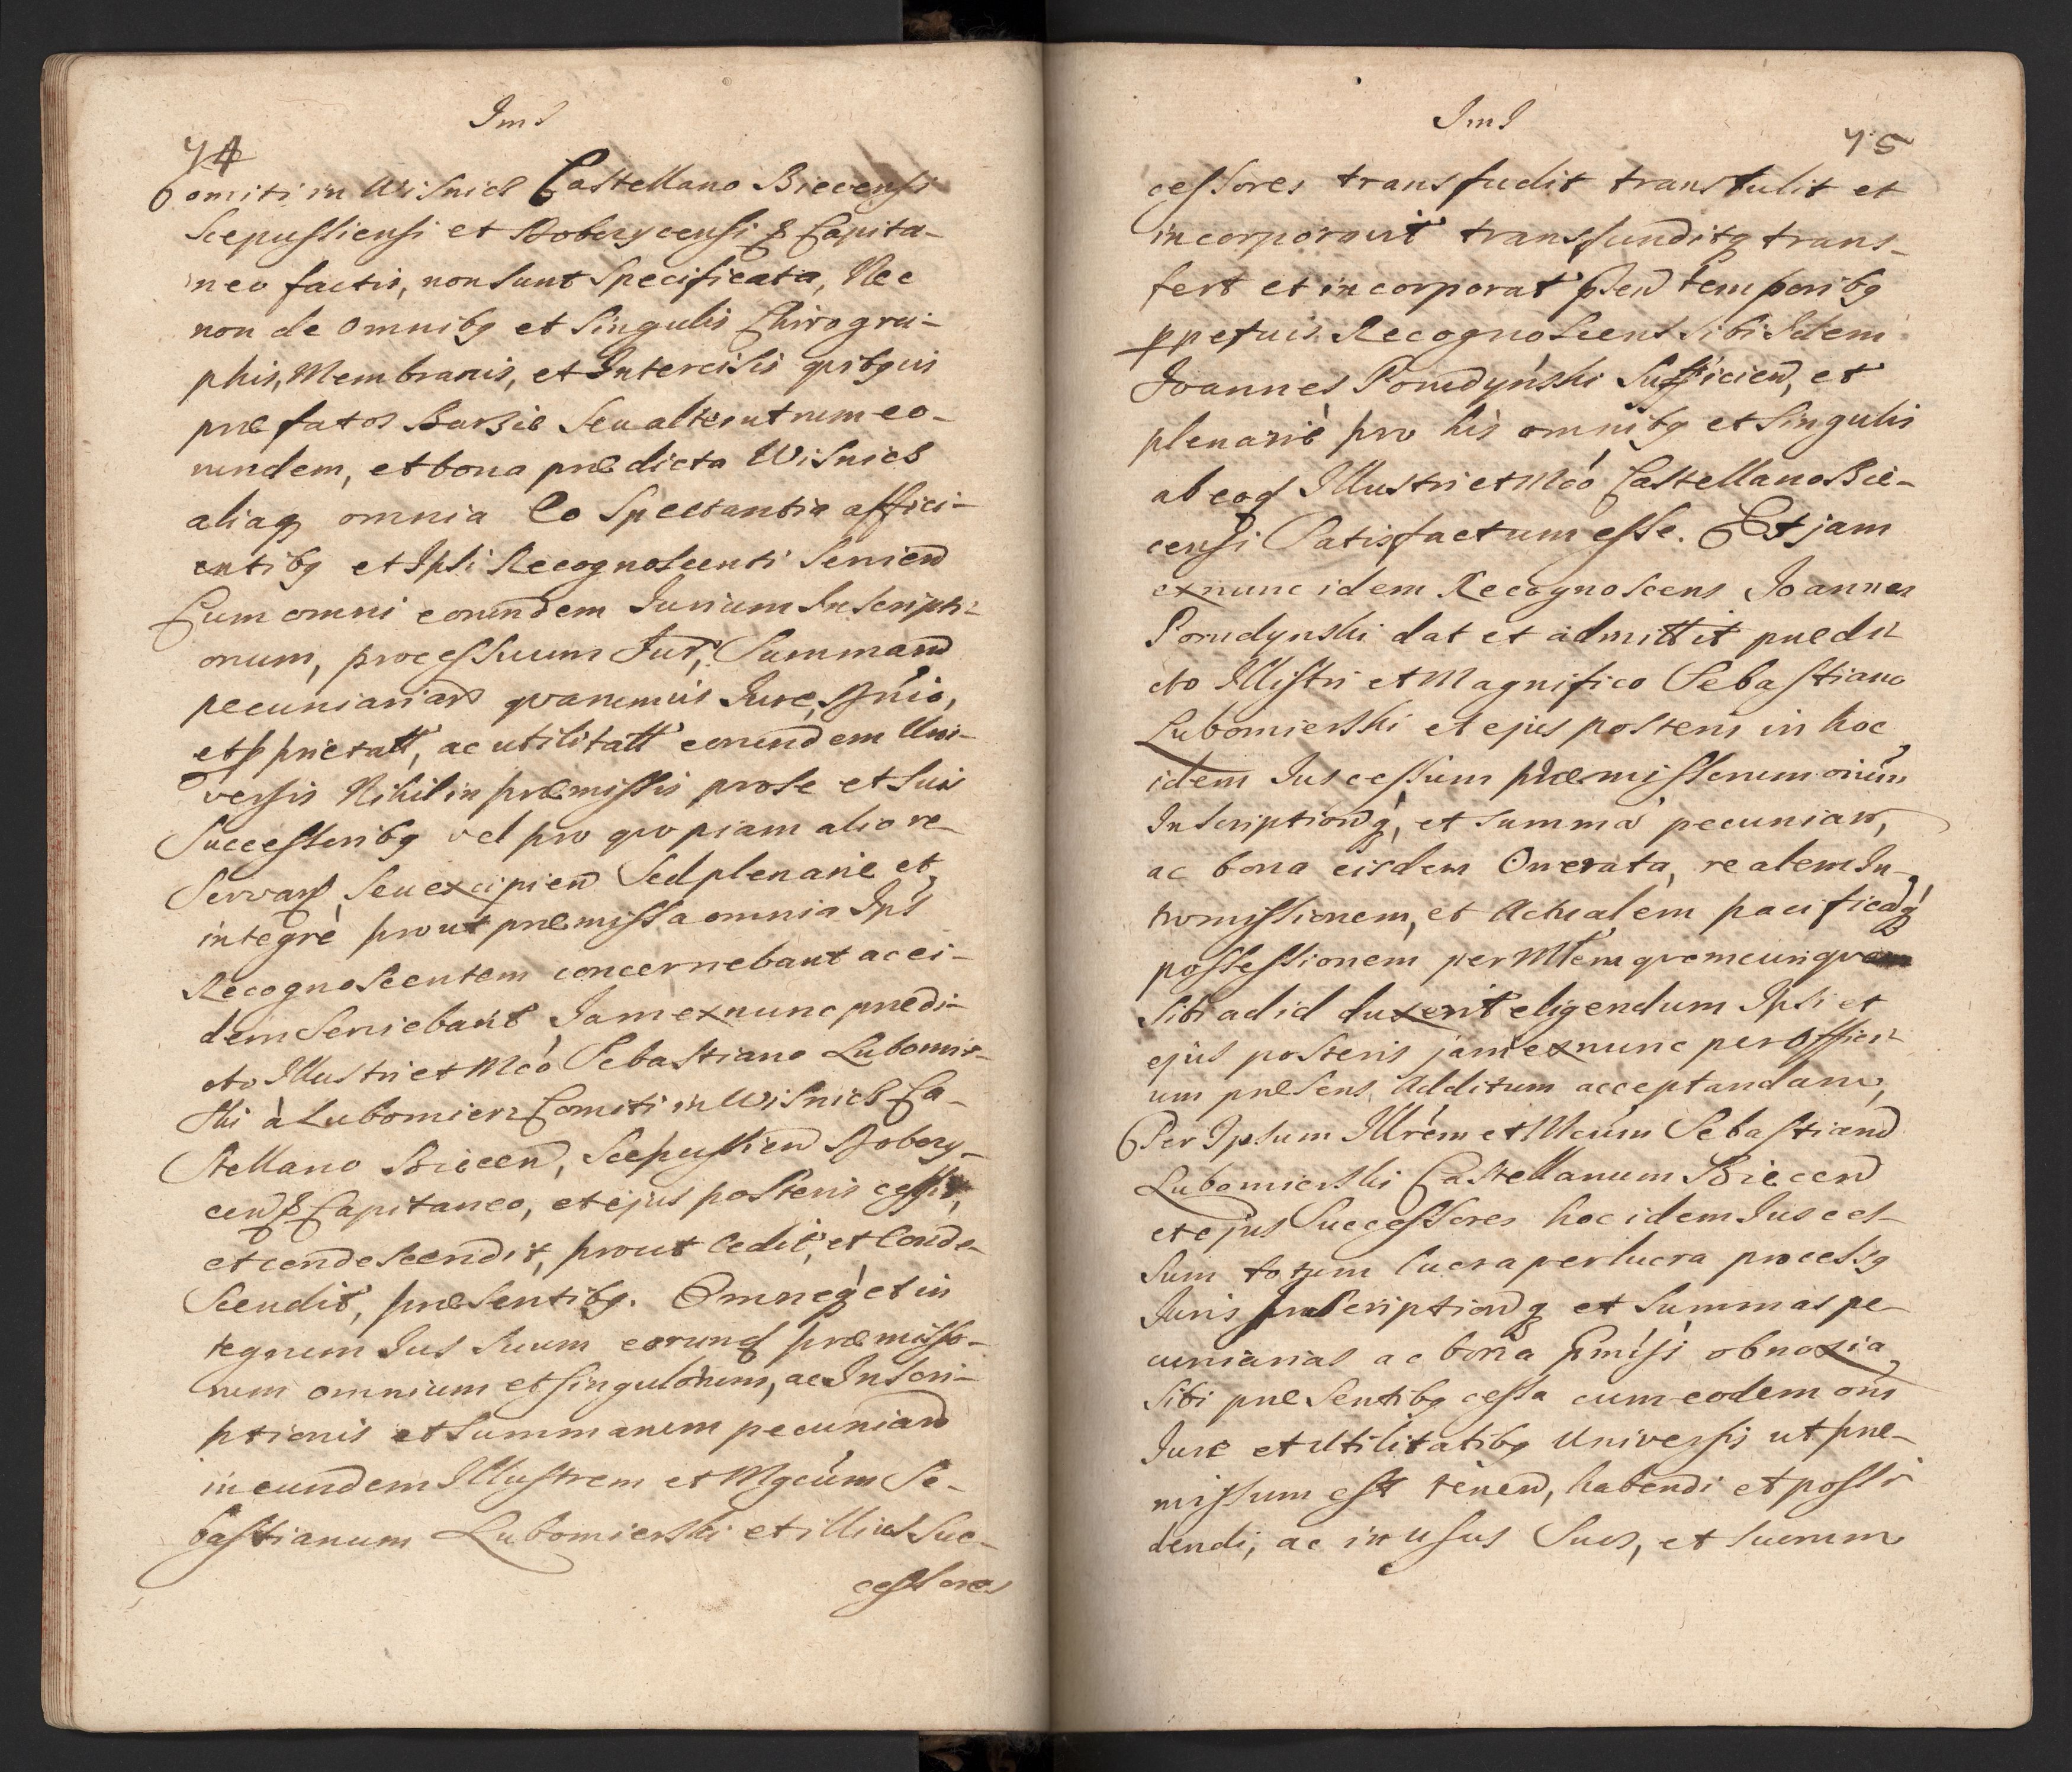 JmJ
74
Comiti in Wisnicz Castellano Biecensi
Scepussiensi et Dobczycensi & Capita-
neo factis, non sunt Specificata, Nec
non de omnibq et Singulis Chirogra-
phis, Membranis, et Intercisis qvibqvis
præfatos Barzie Seu alterutrum eo-
rundem, et bona prædicta Wisnicz
aliaq omnia Eo Spectantia affici-
entibq et Ipsi Recognoscenti Servien
Cum omni eorundem Jurium Inscripti-
onum, processuum Jur, Summarum
pecuniariar qvarumvis Jure, Dnio,
et pprietatt, ac utilitatt eorundem Uni-
versis Nihil in præmissis pro se et suis
Successoribq vel pro qvopiam alio re-
Servan, Seu excipien Sed plenarie et
integrè prout præmissa omnia Ips
Recognoscentem concernebant ac ei-
dem Serviebant, Jam exnunc prædi-
cto Illustri et Mco Sebastiano Lubomir-
ski à Lubomierz Comiti in Wisnicz Ca-
stellano Biecen, Scepussien Dobczy-
cen & Capitaneo, et ejus posteris cessit,
et condescendit, prout Cedit, et Conde-
Scendit, præsentibq. Omneq et in
tegrum Jus Suum eorund præmisso-
rum omnium et singulorum, ac Inscri-
ptionis et Summarum pecuniar
in eundem Illustrem et Mgcum Se-
bastianum Lubomierski et illius Suc-
cessores
JmJ
75
cessores transfudit transtulit et
incorporavit transfunditq trans-
fert et incorporat pden temporibq
ppetuis Recognoscens sibi Idem
Joannes Porudynski Sufficien, et
plenariè pro his omnibq et Singulis
ab eod Illustri et Mco Castellano Bie-
censi Satisfactum esse. Et jam
exnunc idem Recognoscens Joannes
Porudynski dat et admittit prædi-
cto Illustri et Magnifico Sebastiano
Lubomierski et ejus posteris in hoc
idem Jus cessum præmissorum oium
Inscriptionq, et summa pecuniar,
ac bona eisdem Onerata, realem In-
tromissionem, et Actualem pacificaq
possessionem per Mlem qvemcunqvem
Sibi ad id duxerit eligendum Ipsi et
ejus posteris jam exnunc per Offici-
um præsens Additum acceptandam,
Per Ipsum Illrem et Mcum Sebastian
Lubomierski Castellanum Biecen
et ejus Successores hoc idem Jus ces-
sum totum lucra perlucra processq
Juris Inscriptionq et Summas pe-
cuniarias ac bona pmisi obnoxia
Sibi præsentibq cessa cum eodem oni
Jure et Utilitatibq Universis ut præ-
missum est tenen, habendi et possi
dendi, ac in usus Suos, et suorum